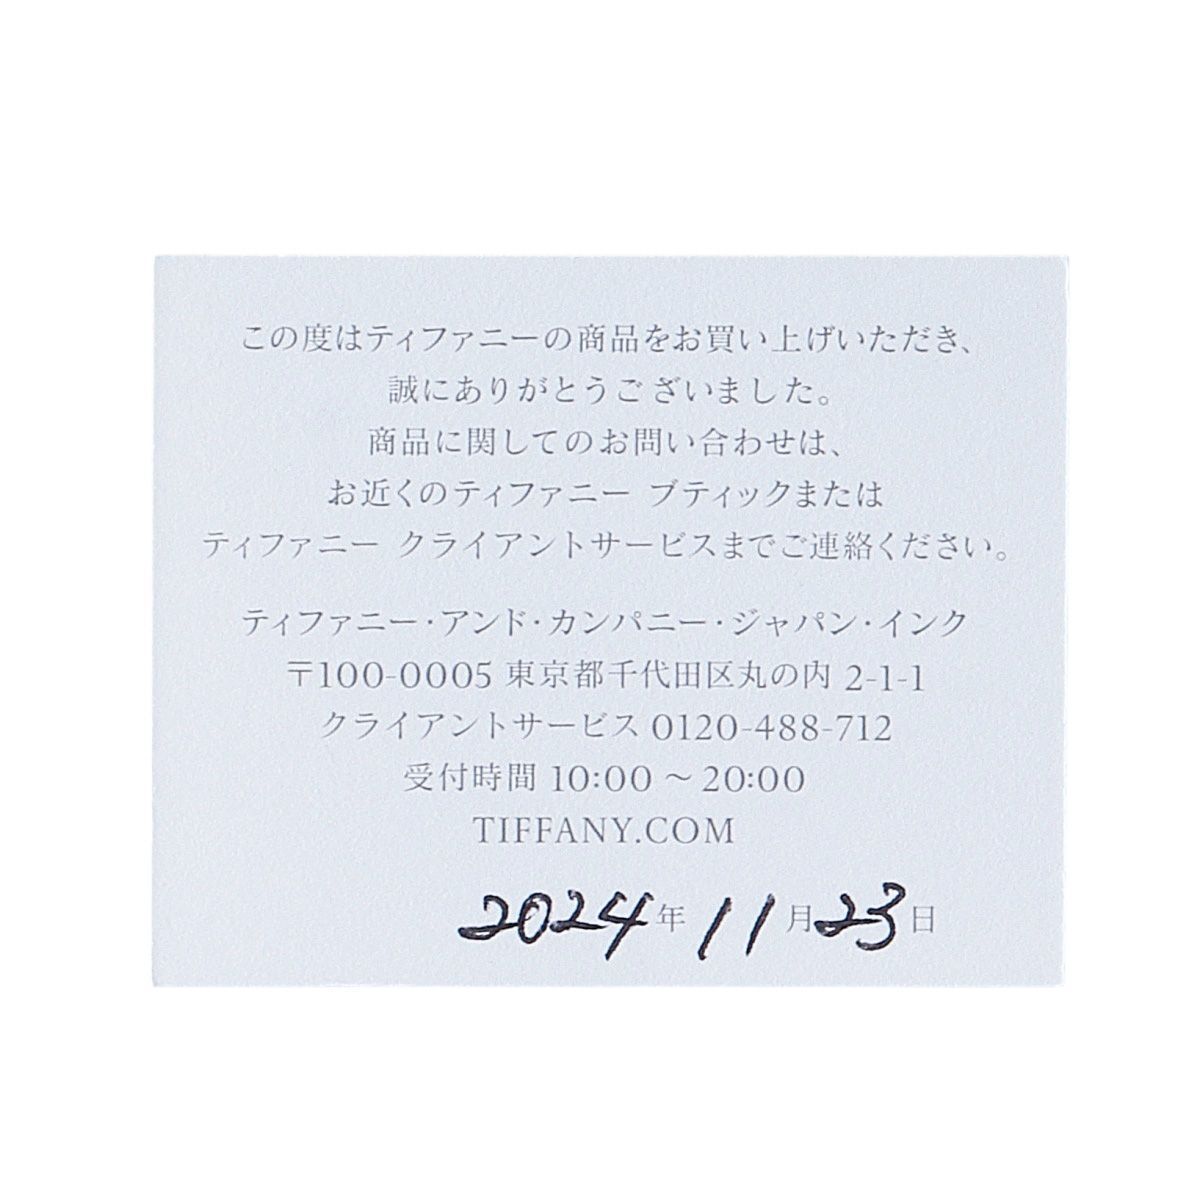 この度はティファニーの商品をお買い上げいただき、
誠にありがとうございました。
商品に関してのお問い合わせは、
お近くのティファニー ブティックまたは
ティファニー クライアントサービスまでご連絡ください。
ティファニー・アンド・カンパニー・ジャパン・インク
〒100-0005 東京都千代田区丸の内 2-1-1
クライアントサービス 0120-488-712
受付時間 10:00 ～ 20:00
TIFFANY.COM
2024年 11月23日